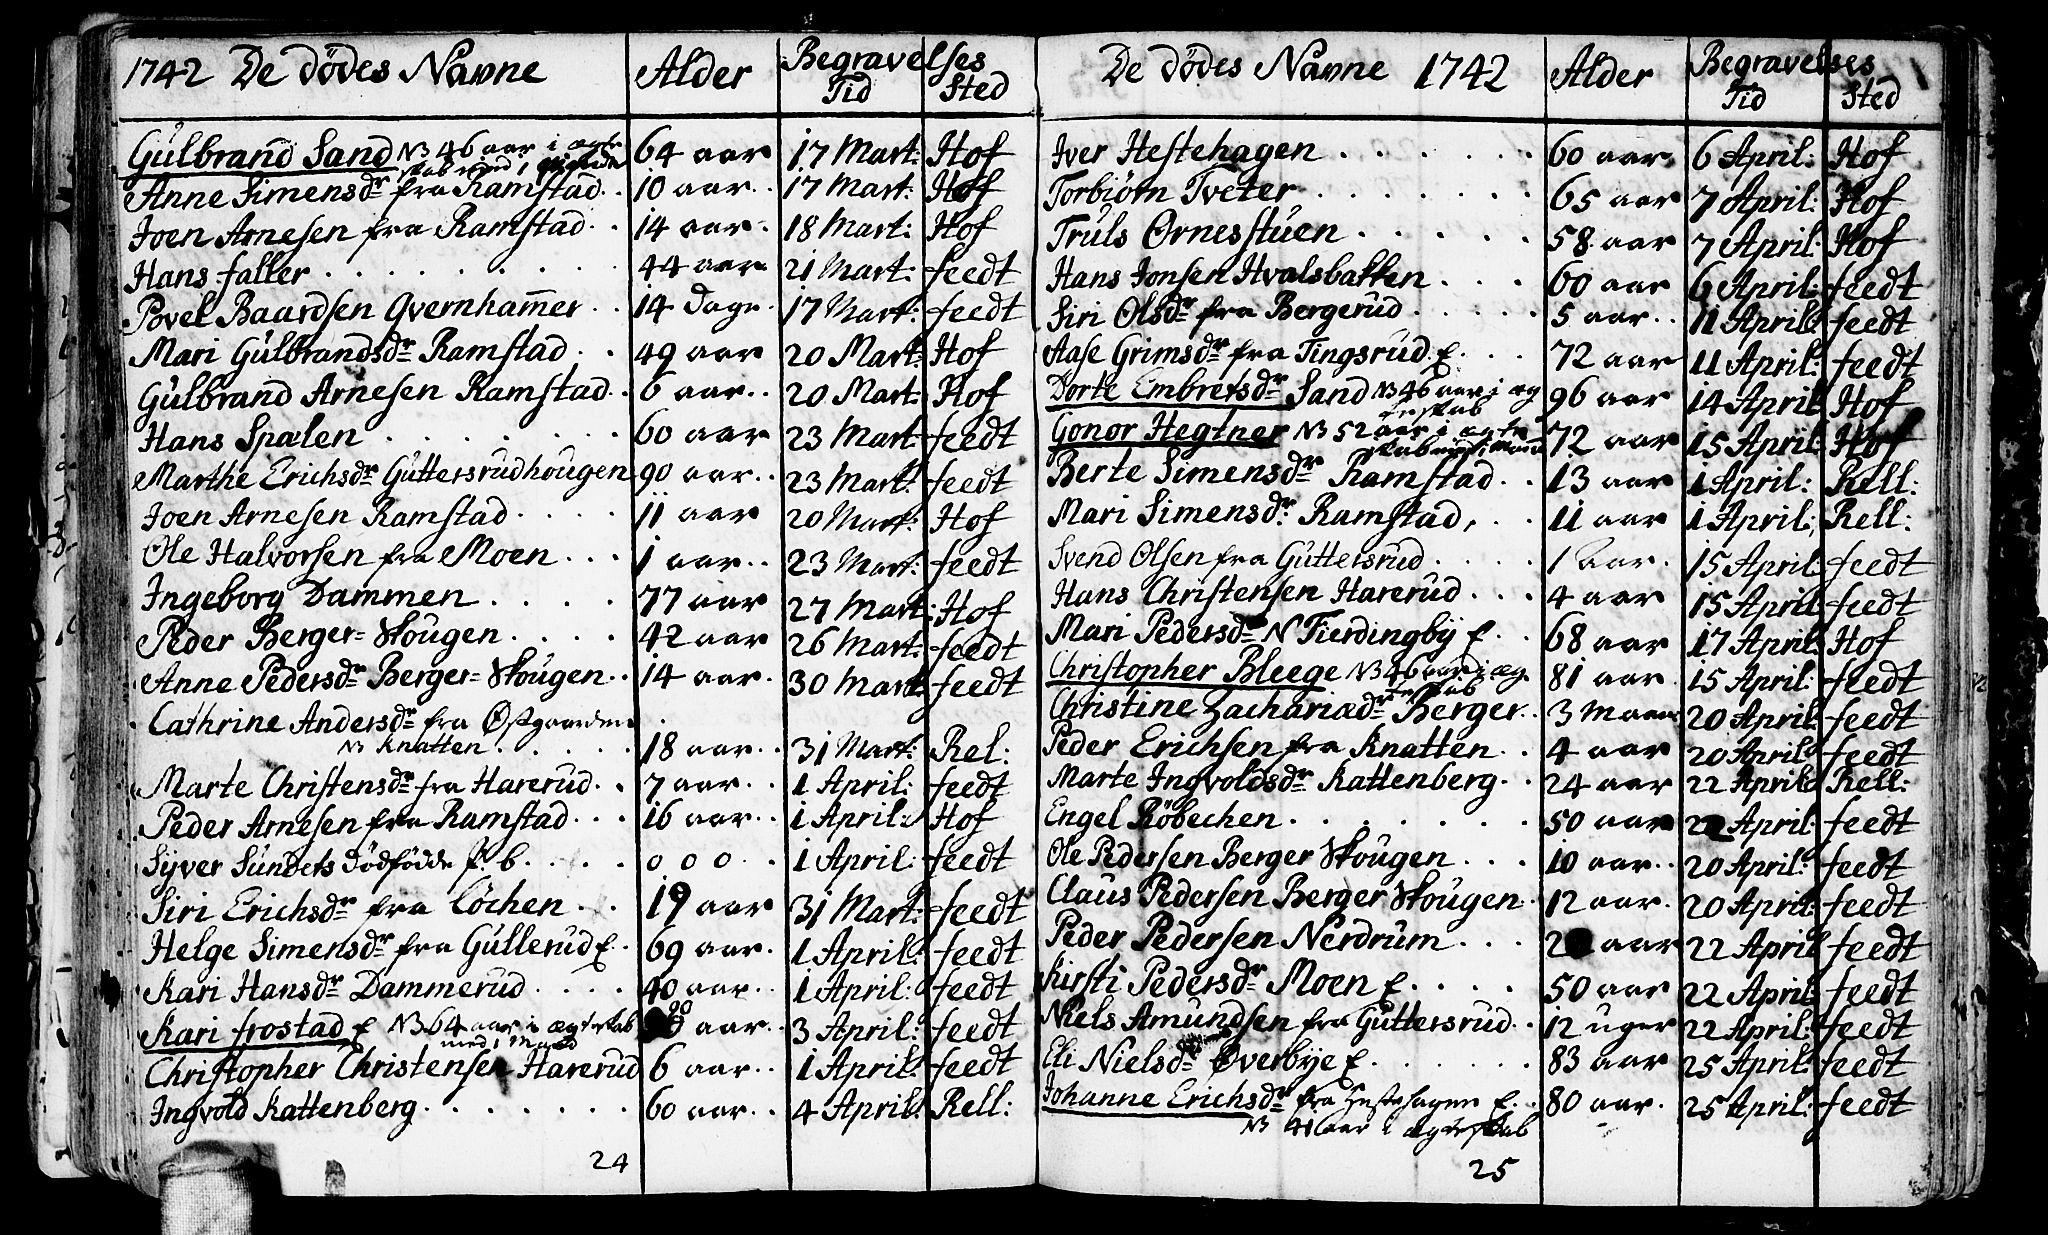 1742 De dödes Navne Alder Begravelses
Tid Sted
Gulbrand Sand NB 46 aar i ægte 64 aar 17 Mart: Hof
skab med 1
Anne Simensdr fra Ramstad . . 10 aar . . 17 Mart: Hof
Joen Arnesen fra Ramstad . . 14 aar . 18 Mart: Hof
Hans faller . . . . . . . . . 44 aar. 21 Mart: feedt
Povel Baardsen Qvernham̅er . . 14 Dage . 17 Mart: feedt
Mari Gulbrandsdr Ramstad . . 49 aar 20 Mart: Hof
Gulbrand Arnesen Ramstad . . 6 aar . . 20 Mart: Hof
Hans Spælen . . . . . . . 60 aar 23 Mart: feedt
Marthe Erichsdr Guttersrudhougen 90 aar . . 23 Mart: feedt
Joen Arnesen Ramstad . . . . 11 aar 20 Mart: Hof
Ole Halvorsen fra Moen . . . 1 aar . . 23 Mart: feedt
Ingeborg Dammen . . . . 77 aar 27 Mart: Hof
Peder Berger=Skougen . . . . 42 aar 26 Mart: feedt
Anne Pedersdr Berger=Skougen . . 14 aar . . 30 Mart feedt
Cathrine Andersdr fra Østgaarden .
NB Knatten . . . . . 18 aar . . 31 Mart: Rel:
Marte Christensdr fra Harerud . . 7 aar . . 1 April: feedt
Peder Arnesen fra Ramstad . . . 16 aar . . 1 April: Hof
Syver Sunbets dödfödde P. b . . . . 0 0 0 . . 1 April: feedt
Siri Erichsdr fra Löchen . . 19 aar 31 Mart: feedt
Helge Simensdr fra Gullerud E . 69 aar . . 1 April: feedt
Kari Hansdr Dammerud . . . . 40 aar . . 1 April: feedt
Kari frostad E NB 64 aar i ægteskab aar . . 3 April: feedt
med 1 Mand
Christopher Christensen Harerud 6 aar . . 1 April: feedt
Ingvold Kattenberg . . . . . . . 60 aar . . 4 April: Rell:
24
De dödes Navne 1742 Alder Begravelses
Tid Sted
Iver Hestehagen . . . . . . 60 aar. 6 April: Hof
Torbiörn Tveter . . . . . . . 65 aar 7 April: Hof
Truls Ørnesstuen . . . . . 58 aar 7 April: Hof
Hans Jonsen Hvalsbakken . . . 60 aar 6 April: feedt
Siri Olsdr fra Bergerud . . . . . 5 aar . . 11 April: feedt
Aase Grimsdr fra Tingsrud E . . . 72 aar 11 April: feedt
Dorte Embretsdr Sand NB 46 aar i æg 96 aar 14 April Hof
teskab
Gonor Hegtner NB 52 aar i ægte 72 aar 15 April: Hof
skab med 1 Mand
Berte Simensdr Ramstad . . 13 aar 1 April: Rell:
Mari Simensdr: Ramstad, . . 11 aar 1 April; Rell:
Svend Olsen fra Guttersrud . . . . 1 aar . 15 April feedt
Hans Christensen Harerud . . . 4 aar 15 April feedt
Mari Pedersdr N Fierdingby E . . 68 aar 17 April: Hof
Christopher Bleege NB 46 aar i æg 81 aar . 15 April: feedt
teskab
Christine Zachariædr Berger . . 3 Maan: 20 April feedt
Peder Erichsen fra Knatten . . 4 aar 20 April: feedt
Marte Ingvoldsdr Kattenberg . . 24 aar 22 April: Rell:
Engel Röbechen . . . . . . . 50 aar April: feedt
Ole Pedersen Berger Skougen . . . 10 aar . . 20 April: feedt
Claus Pedersen Berger Skougen . 12 aar . 20 April: feedt
Peder Pedersen Nerdrum . . . aar 22 April feedt
Kirsti Pedersdr Moen E . . . . 50 aar 22 April: feedt
Niels Amundsen fra Guttersrud . . 12 uger 22 April: feedt
Eli Nielsdr Øverbye E . . . . . . 83 aar 25 April: feedt
Johanne Erichsdr fra Hestehagen E . . 80 aar . 25 April: feedt
NB 41 aar i ægteskab
25